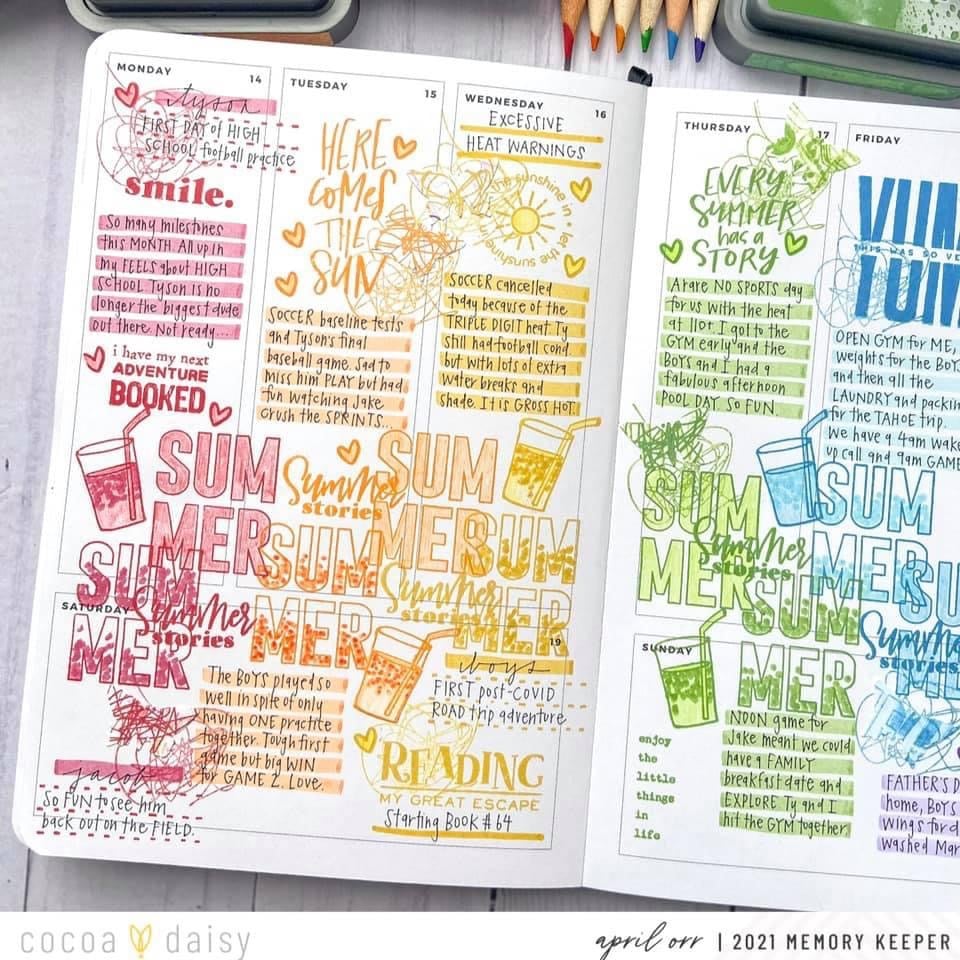 MONDAY 14
tyson
FIRST DAY of HIGH
SCHOOL football practice
smile.
So many milestones
this MONTH. All up in
my FEELS about HIGH
SCHOOL. Tyson is no
longer the biggest dude
out there. Not ready...
i have my next
ADVENTURE
BOOKED
SUM
MER
SUM
MER
Summer
stories
TUESDAY 15
HERE
COMES
THE
SUN
SOCCER baseline tests
and Tyson's final
baseball game. Sad to
miss him PLAY but had
fun watching Jake
crush the SPRINTS...
Summer
stories
SUM
MER
WEDNESDAY 16
EXCESSIVE
HEAT WARNINGS
the sunshine in • let the sunshine in
SOCCER cancelled
today because of the
TRIPLE DIGIT heat. Ty
still had football cond.
but with lots of extra
water breaks and
shade. It is GROSS HOT.
SUM
MER
SUM
MER
Summer
stories
SATURDAY 19
The BOYS played so
well in spite of only
having ONE practice
together. Tough first
game but big WIN
for GAME 2. Love.
jacob
So FUN to see him
back out on the FIELD.
boys
FIRST post-COVID
ROAD trip adventure
READING
MY GREAT ESCAPE
Starting Book #64
THURSDAY 17
EVERY
SUMMER
has a
STORY
A rare NO SPORTS day
for us with the heat
at 110f. I got to the
GYM early and the
BOYS and I had a
fabulous afternoon
POOL DAY. SO FUN.
SUM
MER
Summer
stories
SUM
MER
FRIDAY
THIS WAS SO VE
OPEN GYM for ME,
weights for the BOY
and then all the
LAUNDRY and packin
for the TAHOE trip.
We have a 4am wake
up call and 9am GAME
SUM
MER
SU
Summe
stories
SUNDAY
enjoy
the
little
things
in
life
NOON game for
Jake meant we could
have a FAMILY
breakfast date and
EXPLORE. Ty and I
hit the GYM together.
FATHER'S D
home, BOYS
wings for d
washed Mar
cocoa daisy
april orr | 2021 MEMORY KEEPER